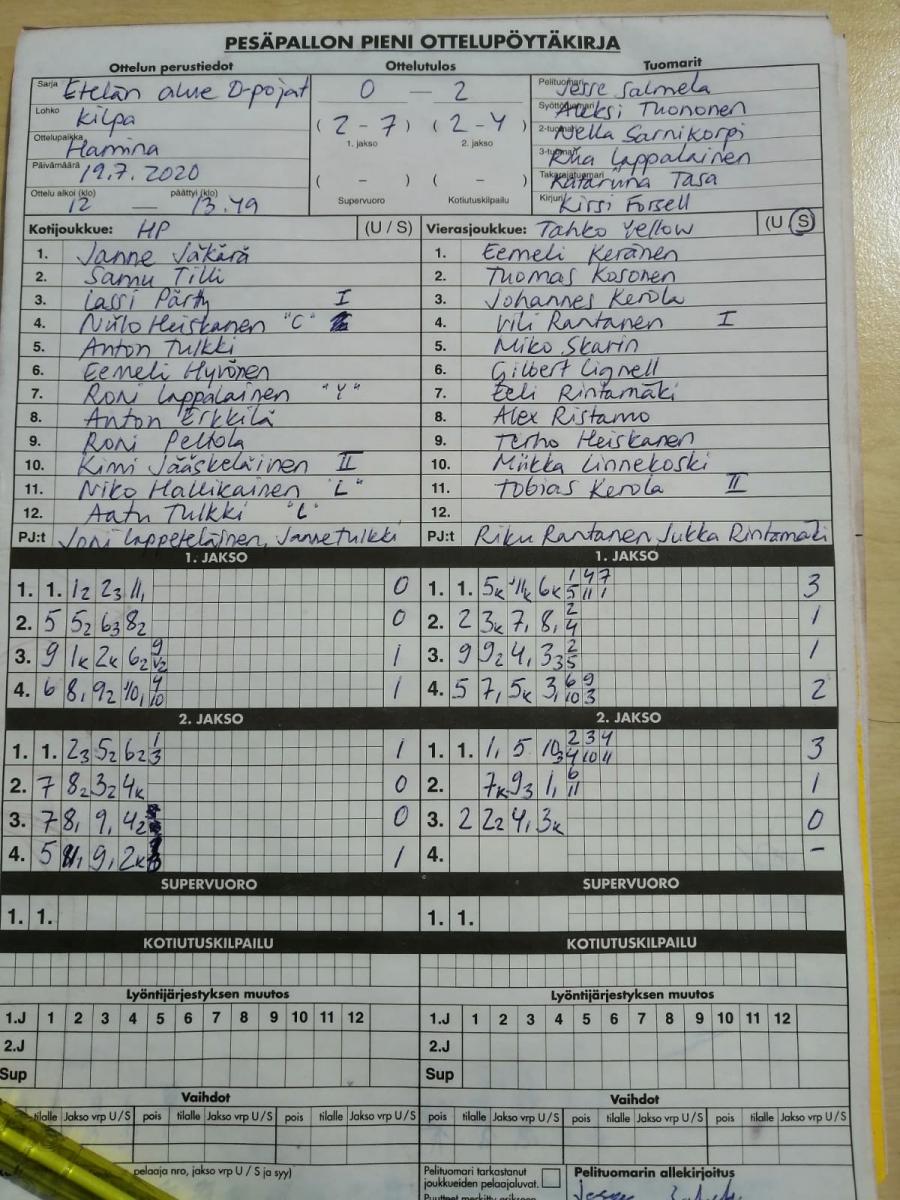 PESÄPALLON PIENI OTTELUPÖYTÄKIRJA
Ottelun perustiedot Ottelutulos Tuomarit
Sarja Etelän alue D-pojat 0 — 2 Pelituomari Jesse Salmela
Lohko Kilpa ( 2 - 7 ) ( 2 - 4 ) Syöttötuomari Aleksi Tuononen
1. jakso 2. jakso 2-tuomari Nella Sarnikorpi
Ottelupaikka Hamina 3-tuomari Lappalainen
Päivämäärä 19.7.2020 ( - ) ( - ) Takarajatuomari Katariina Tasa
Ottelu alkoi (klo) 12 — päättyi (klo) 13.49 Supervuoro Kotiutuskilpailu Kirjuri Kirsi Forsell
Kotijoukkue: HP (U / S) Vierasjoukkue: Tahko Yellow (U / S)
1. Janne Jäkärä 1. Eemeli Keränen
2. Samu Tilli 2. Tuomas Kosonen
3. Lassi Pärty I 3. Johannes Kerola
4. Niilo Heiskanen "C" 4. Vili Rantanen I
5. Anton Tulkki 5. Miko Skarin
6. Eemeli Hyvönen 6. Gilbert Lignell
7. Roni Lappalainen "Y" 7. Eeli Rintamäki
8. Anton Erkkilä 8. Alex Ristamo
9. Roni Peltola 9. Terho Heiskanen
10. Kimi Jääskeläinen II 10. Miikka Linnekoski
11. Niko Hallikainen "L" 11. Tobias Kerola II
12. Aatu Tulkki "L" 12.
PJ:t Joni Lappeteläinen, Janne Tulkki PJ:t Riku Rantanen, Jukka Rintamäki
1. JAKSO 1. JAKSO
1. 1. 1₂ 2₃ 11, 0 1. 1. 5k 11k 6k 1/5 4/11 7/1 3
2. 5 5₂ 6₃ 8₂ 0 2. 2 3k 7, 8, 2/4 1
3. 9 1k 2k 6₂ 9/12 1 3. 9 9₂ 4, 3₃ 2/5 1
4. 6 8, 9₂ 10, 4/10 1 4. 5 7, 5k 3, 6/10 9/3 2
2. JAKSO 2. JAKSO
1. 1. 2₃ 5₂ 6₂ 1/3 1 1. 1. 1, 5 10₃ 2/4 3/10 4/11 3
2. 7 8₂ 3₂ 4k 0 2. 7k 9₃ 1, 6/11 1
3. 7 8, 9, 4₂ 0 3. 2 2₂ 4, 3k 0
4. 5 11, 9, 2k 1 4. -
SUPERVUORO SUPERVUORO
1. 1. 1. 1.
KOTIUTUSKILPAILU KOTIUTUSKILPAILU
Lyöntijärjestyksen muutos Lyöntijärjestyksen muutos
1.J 1 2 3 4 5 6 7 8 9 10 11 12 1.J 1 2 3 4 5 6 7 8 9 10 11 12
2.J 2.J
Sup Sup
Vaihdot Vaihdot
tilalle Jakso vrp U / S pois tilalle Jakso vrp U / S pois tilalle Jakso vrp U / S pois tilalle Jakso vrp U / S pois tilalle Jakso vrp U / S pois tilalle Jakso vrp U / S
pelaaja nro, jakso vrp U / S ja syy) Pelituomari tarkastanut Pelituomarin allekirjoitus
joukkueiden pelaajaluvat.